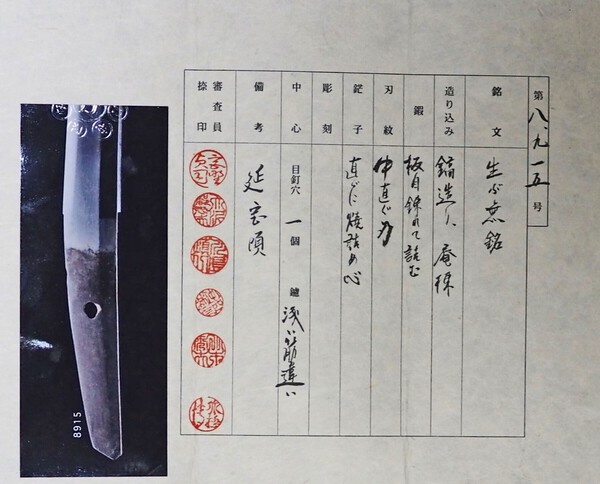 第 八、九一五 号
銘文 生ぶ無銘
造り込み 鎬造り、庵棟
鍛 板目鍛れて詰む
刃紋 中直ぐ刃
鋩子 直ぐに焼詰め心
彫刻
中心 目釘穴 一個 鑢 浅い筋違い
備考 延宝頃
審査員捺印
8915